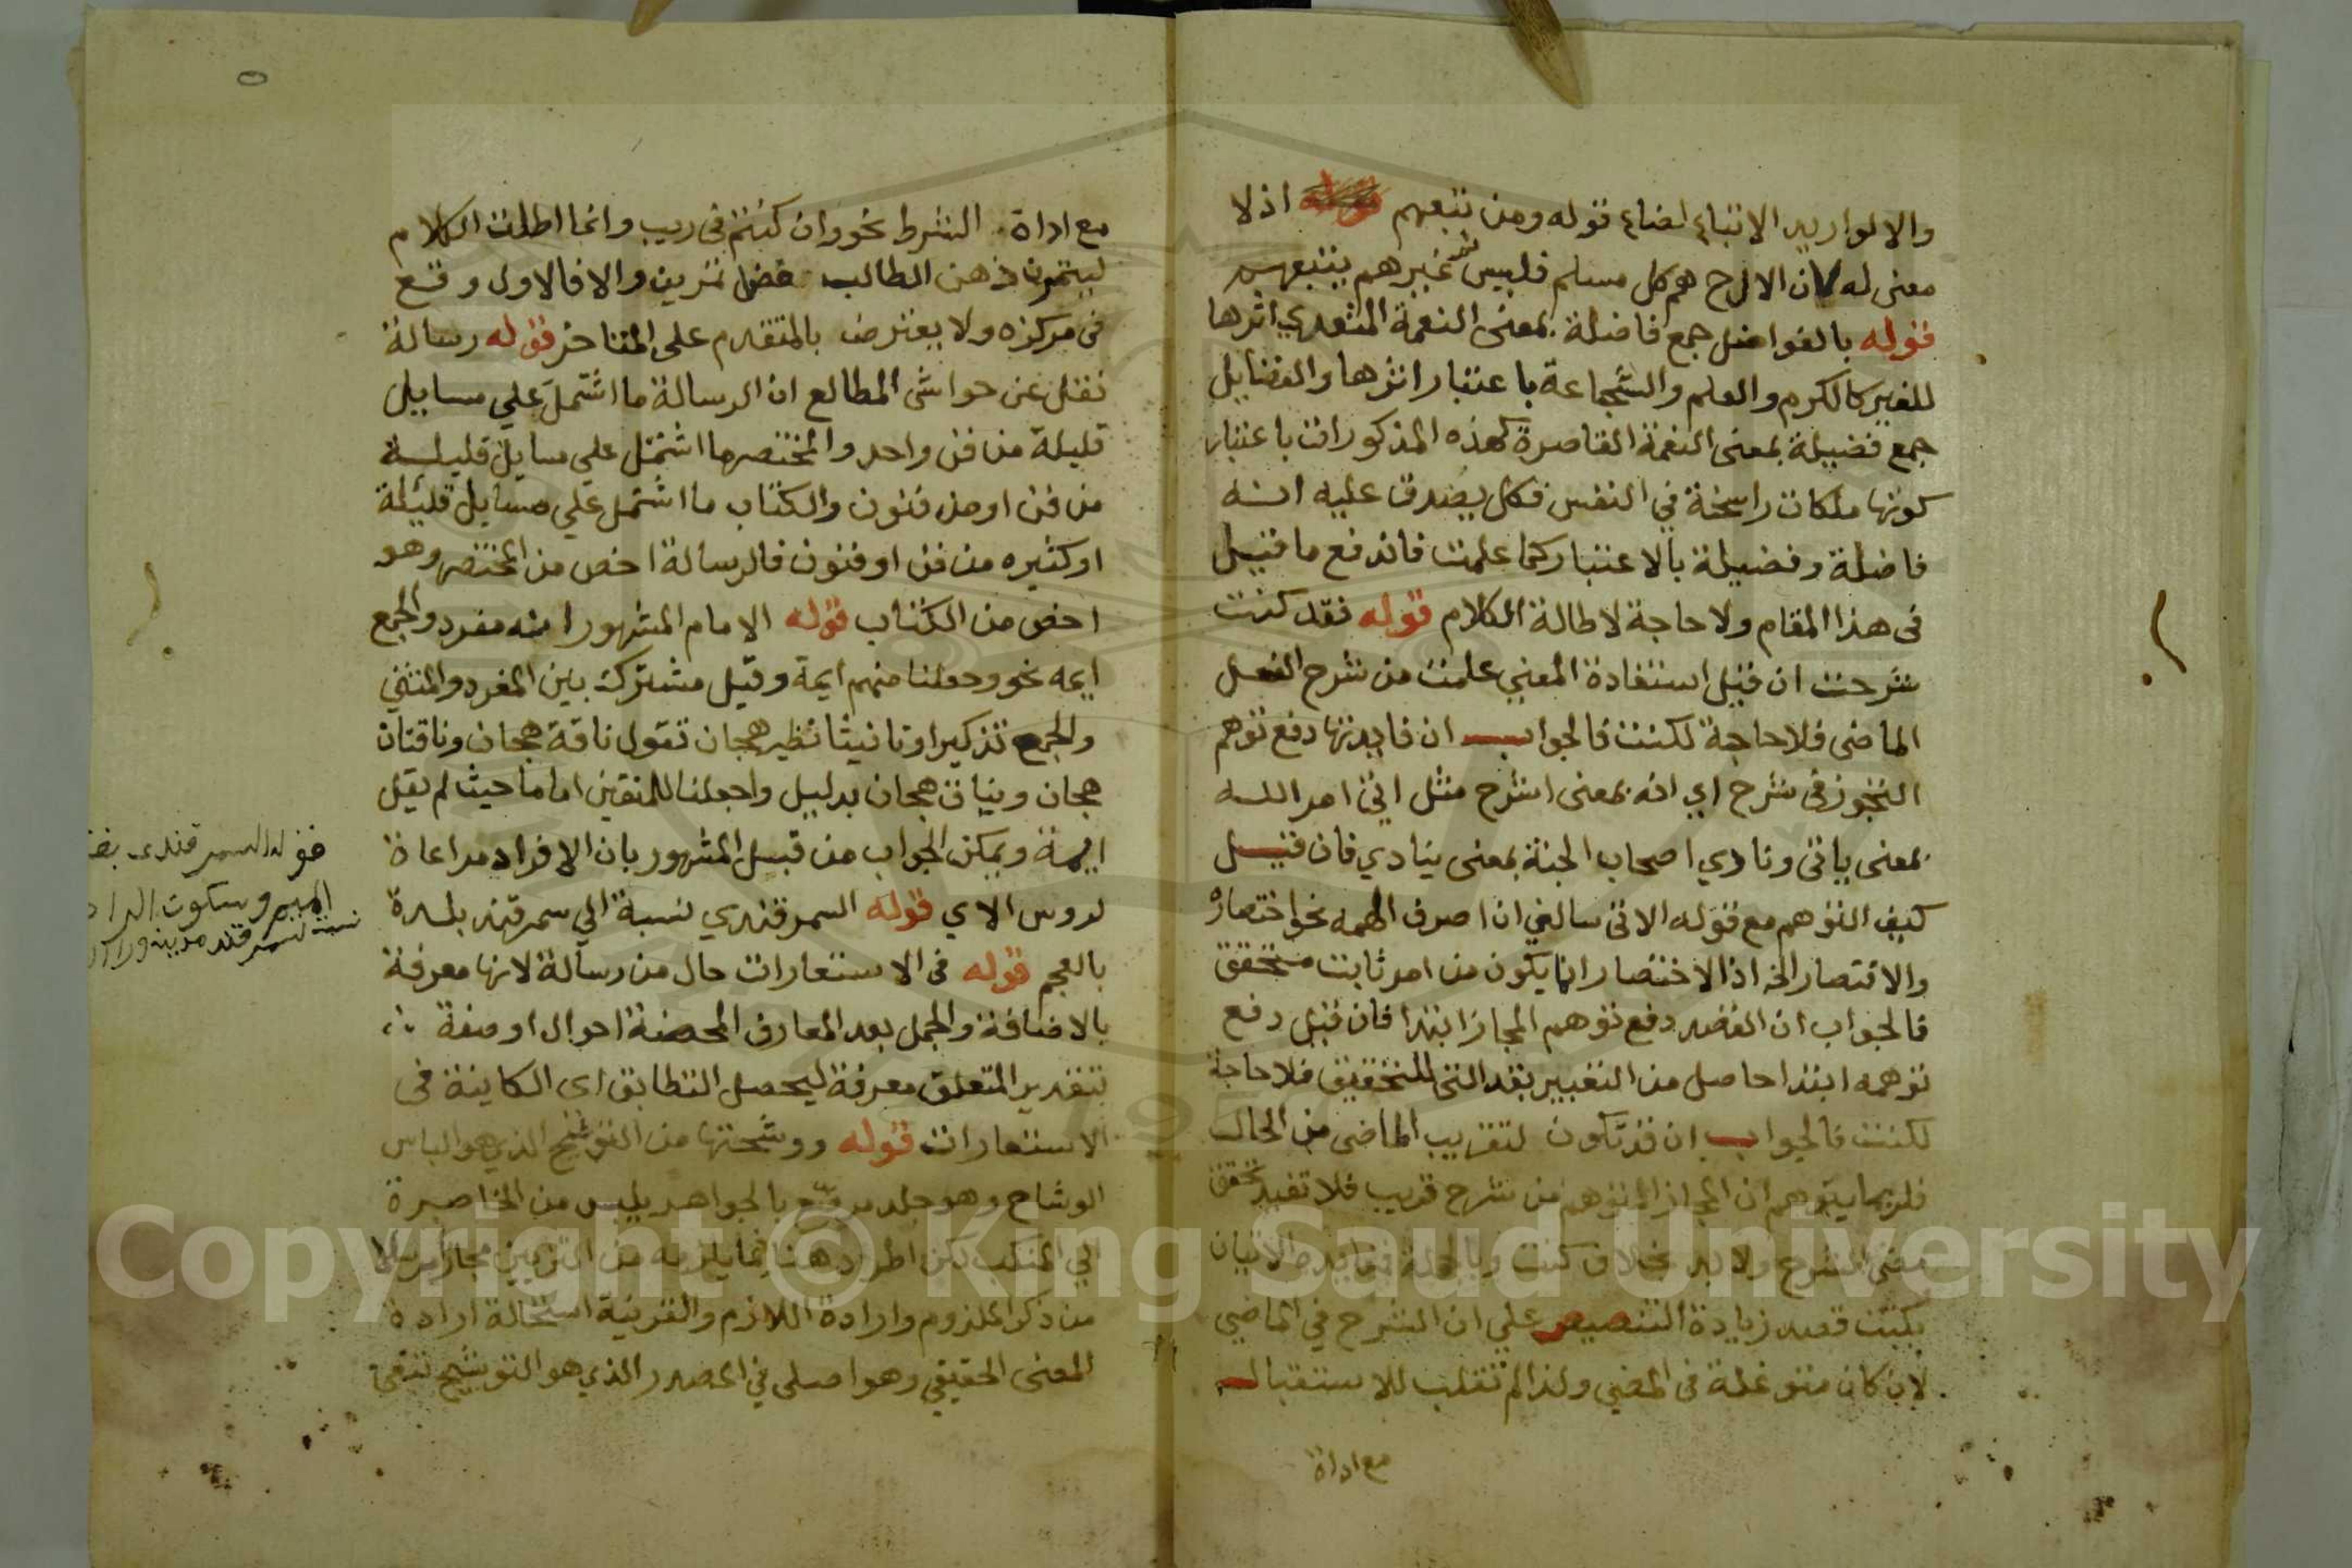 والا لو اريد الاتباع لضاع قوله ومن تبعهم اذ لا
معنى له لان الال ح هم كل مسلم فليس ثم غيرهم يتبعهم
قوله بالفواضل جمع فاضلة بمعنى النعمة المتعدي اثرها
للغير كالكرم والعلم والشجاعة باعتبار اثرها والفضايل
جمع فضيلة بمعنى النعمة القاصرة كهذه المذكورات باعتبار
كونها ملكات راسخة في النفس فكل يصدق عليه انه
فاضلة وفضيلة بالاعتبار كما علمت فاندفع ما قيل
فى هذا المقام ولا حاجة لاطالة الكلام قوله فقد كنت
شرحت ان قيل استفادة المعني علمت من شرح الفعل
الماضى فلا حاجة لكنت فالجواب ان فايدتها دفع توهم
التجوز فى شرح اي انه بمعنى اشرح مثل اتى امر الله
بمعنى ياتى ونادي اصحاب الجنة بمعنى ينادي فان قيل
كيف التوهم مع قوله الاتى سالني ان اصرف الهمه نحو اختصاره
والاقتصار الخ اذ الاختصار انما يكون من امر ثابت متحقق
فالجواب ان القصد دفع توهم المجاز ابتدا فان قيل دفع
توهمه ابتدا حاصل من التعبير بقد التى للتحقيق فلا حاجة
لكنت فالجواب ان قد تكون لتقريب الماضى من الحال
فلربما يتوهم ان المجاز المتوهم من شرح قريب فلا تفيد تحقق
معنى الشرح ولا بد بخلاف كنت وبالجملة ففايدة الاتيان
بكنت قصد زيادة التنصيص علي ان الشرح في الماضي
لان كان متوغلة فى المضي ولذا لم تقلب للاستقبال
مع اداة
مع اداة الشرط نحو وان كنتم فى ريب وانما اطلت الكلام
ليتمرن ذهن الطالب فضل تمرين والا فالاول وقع
فى مركزه ولا يعترض بالمتقدم على المتاخر قوله رسالة
نقل عن حواشى المطالع ان الرسالة ما اشتمل علي مسايل
قليلة من فن واحد والمختصر ما اشتمل علي مسايل قليلة
من فن او من فنون والكتاب ما اشتمل علي مسايل قليلة
او كثيره من فن او فنون فالرسالة اخص من المختصر وهو
اخص من الكتاب قوله الامام المشهور انه مفرد والجمع
ايمه نحو وجعلنا منهم ايمة وقيل مشترك بين المفرد والمثني
والجمع تذكيرا وتانيثا نظير هجان تقول ناقة هجان وناقتان
هجان ونياق هجان بدليل واجعلنا للمتقين اماما حيث لم يقل
ايمة ويمكن الجواب من قبل المشهور بان الافراد مراعاة
لروس الاي قوله السمرقندي نسبة الي سمرقند بلدة
بالعجم قوله فى الاستعارات حال من رسالة لانها معرفة
بالاضافة والجمل بعد المعارف المحضة احوال او صفة
بتقدير المتعلق معرفة ليحصل التطابق اى الكاينة فى
الاستعارات قوله ووشحتها من التوشيح الذي هو الباس
الوشاح وهو جلد مرقع بالجواهر يلبس من الخاصرة
الي المنكب لكن اطرد هنا فيما يلزمه من التزيين مجازا مرسلا
من ذكر الملزوم وارادة اللازم والقرينة استحالة ارادة
المعنى الحقيقي وهو اصلى في المصدر الذي هو التوشيح تبعى
قوله السمرقندى بفتح
الميم وسكون الرا
نسبة لسمرقند مدينة ورا